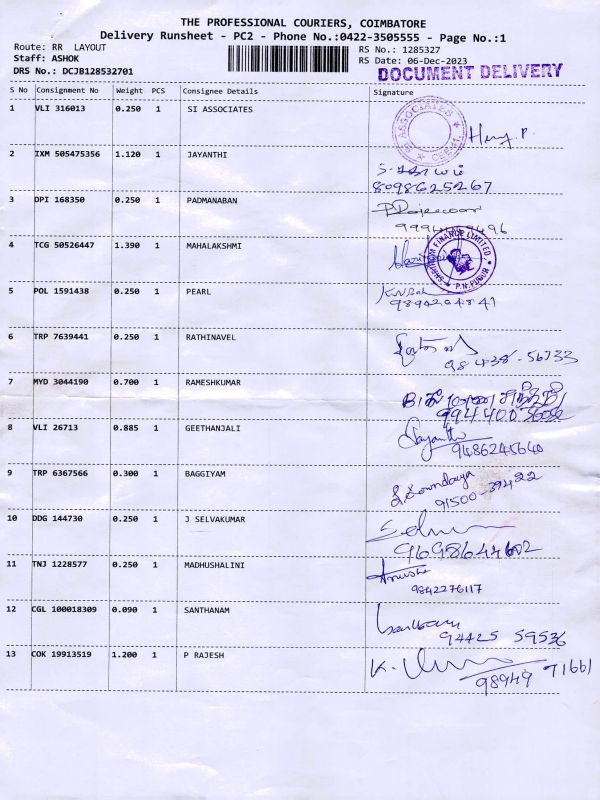 THE PROFESSIONAL COURIERS, COIMBATORE
Delivery Runsheet - PC2 - Phone No.:0422-3505555 - Page No.:1
Route: RR LAYOUT RS No.: 1285327
Staff: ASHOK RS Date: 06-Dec-2023
DRS No.: DCJB128532701 DOCUMENT DELIVERY
S No Consignment No Weight PCS Consignee Details Signature
1 VLI 316013 0.250 1 SI ASSOCIATES
ASSOCIATES
2 IXM 505475356 1.120 1 JAYANTHI
8098625267
3 DPI 168350 0.250 1 PADMANABAN
4 TCG 50526447 1.390 1 MAHALAKSHMI
FINANCE LIMITED
5 POL 1591438 0.250 1 PEARL
9894204841
6 TRP 7639441 0.250 1 RATHINAVEL
98438-56733
7 MYD 3044190 0.700 1 RAMESHKUMAR
8 VLI 26713 0.885 1 GEETHANJALI
Jayanthi
9486245640
9 TRP 6367566 0.300 1 BAGGIYAM
91500-39422
10 DDG 144730 0.250 1 J SELVAKUMAR
11 TNJ 1228577 0.250 1 MADHUSHALINI
Anusha
9842276117
12 CGL 100018309 0.090 1 SANTHANAM
94425 59536
13 COK 19913519 1.200 1 P RAJESH
98949 71661